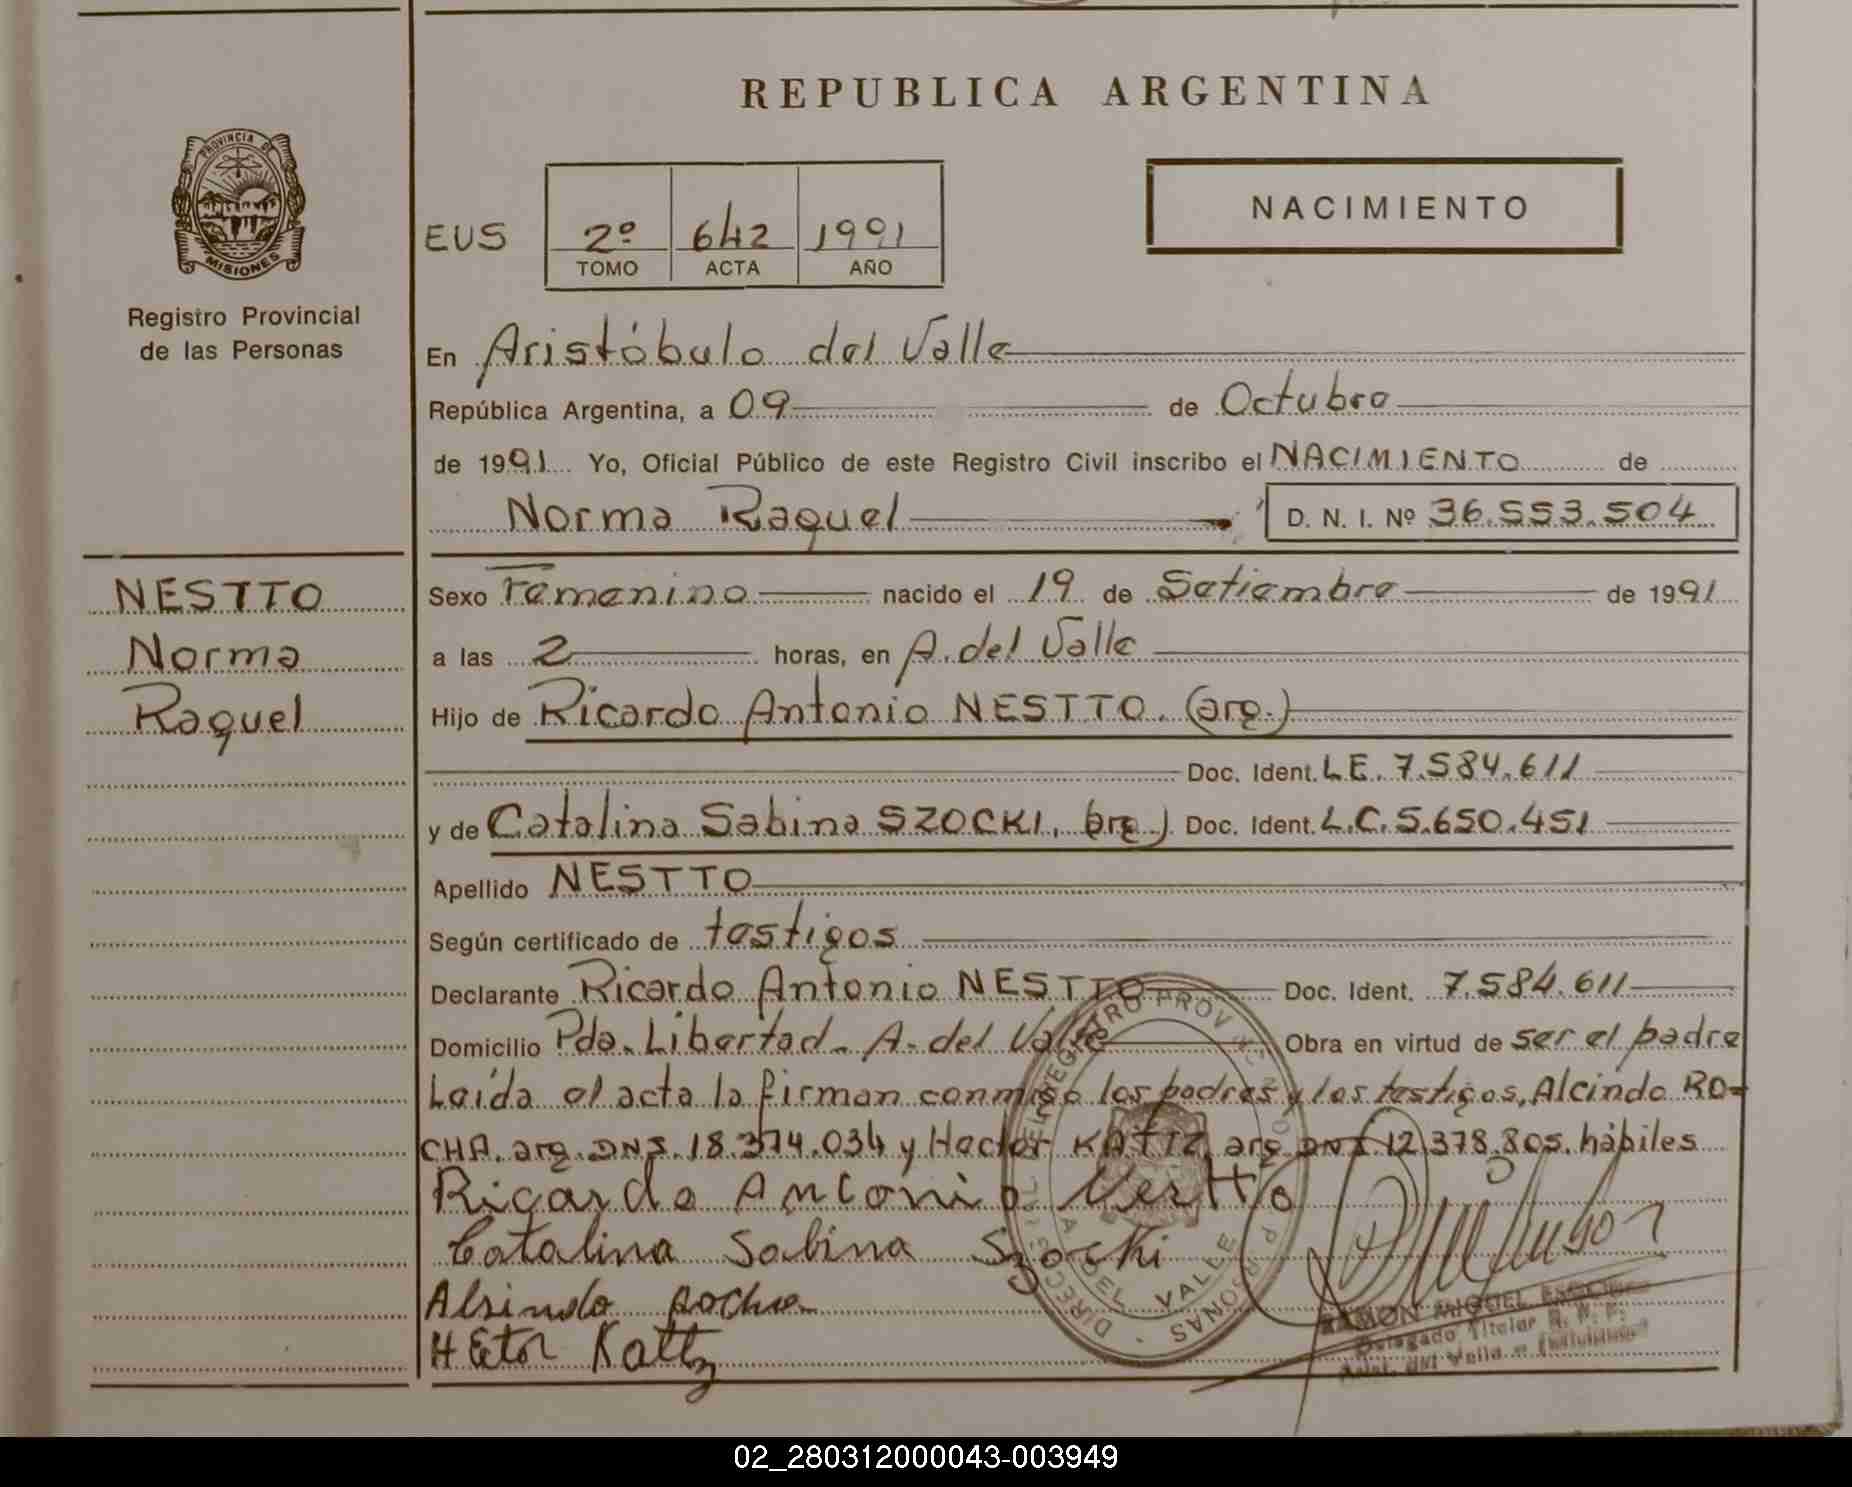 REPUBLICA ARGENTINA
PROVINCIA DE
MISIONES
Registro Provincial
de las Personas
EUS
2º 642 1991
TOMO ACTA AÑO
NACIMIENTO
En Aristóbulo del Valle
República Argentina, a 09 de Octubre
de 1991 Yo, Oficial Público de este Registro Civil inscribo el NACIMIENTO de
Norma Raquel D. N. I. Nº 36.553.504
NESTTO
Norma
Raquel
Sexo Femenino nacido el 19 de Setiembre de 1991
a las 2 horas, en A. del Valle
Hijo de Ricardo Antonio NESTTO. (arg.)
Doc. Ident. L.E. 7.584.611
y de Catalina Sabina SZOCKI, (arg.) Doc. Ident. L.C. 5.650.451
Apellido NESTTO
Según certificado de testigos
Declarante Ricardo Antonio NESTTO Doc. Ident. 7.584.611
Domicilio Pdo. Libertad - A. del Valle Obra en virtud de ser el padre
Leída el acta la firman conmigo los padres y los testigos, Alcindo RO=
CHA. arg. DNI. 18.374.034 y Hector KATTZ, arg DNI 12.378.805. hábiles
Ricardo Antonio Nestto
Catalina Sabina Szocki
Alsindo Rocha
HEctor Kattz
A. DEL VALLE
RAMON MIGUEL
Delegado Titular R. P. P.
Arist. del Valle -
02_280312000043-003949